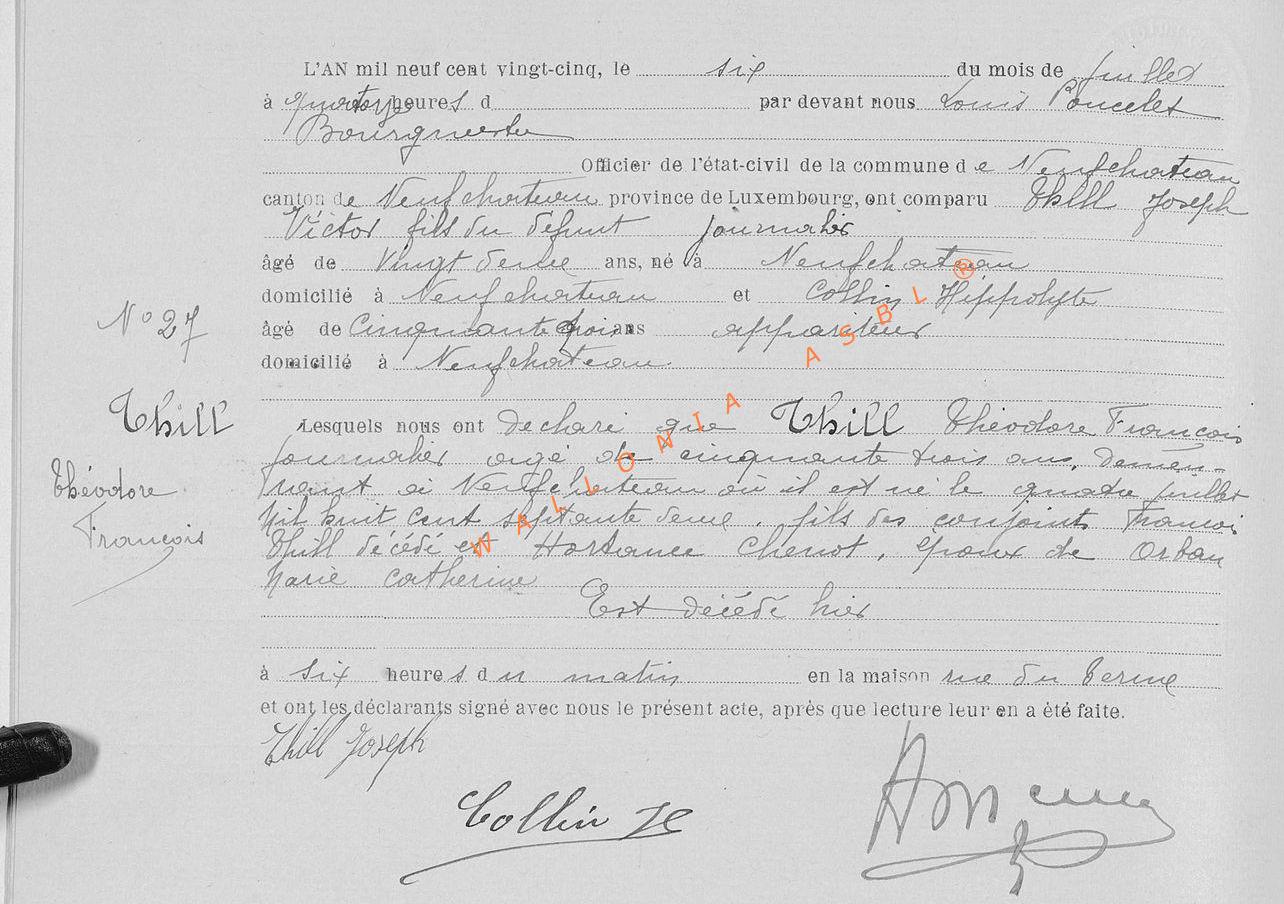 L'AN mil neuf cent vingt-cinq, le six du mois de juillet
à quatorze heures d par devant nous Louis Poncelet
Bourgmestre
Officier de l'état-civil de la commune de Neufchateau
canton de Neufchateau province de Luxembourg, ont comparu Thill Joseph
Victor fils du défunt journalier
âgé de Vingt deux ans, né à Neufchateau
domicilié à Neufchateau et Collin Hippolyte
N° 27
âgé de Cinquante trois ans appariteur
domicilié à Neufchateau
Thill
Théodore
François
Lesquels nous ont declaré que Thill Théodore François
journalier agé de cinquante trois ans, demeu-
rant à Neufchateau où il est né le quatre juillet
Mil huit cent septante deux, fils des conjoints François
Thill décédé et Hortance Chenot, époux de Orban
Marie Catherine
Est décédé hier
à six heures du matin en la maison rue du
et ont les déclarants signé avec nous le présent acte, après que lecture leur en a été faite.
Thill Joseph
Collin H
WALLONIA ASBL ®